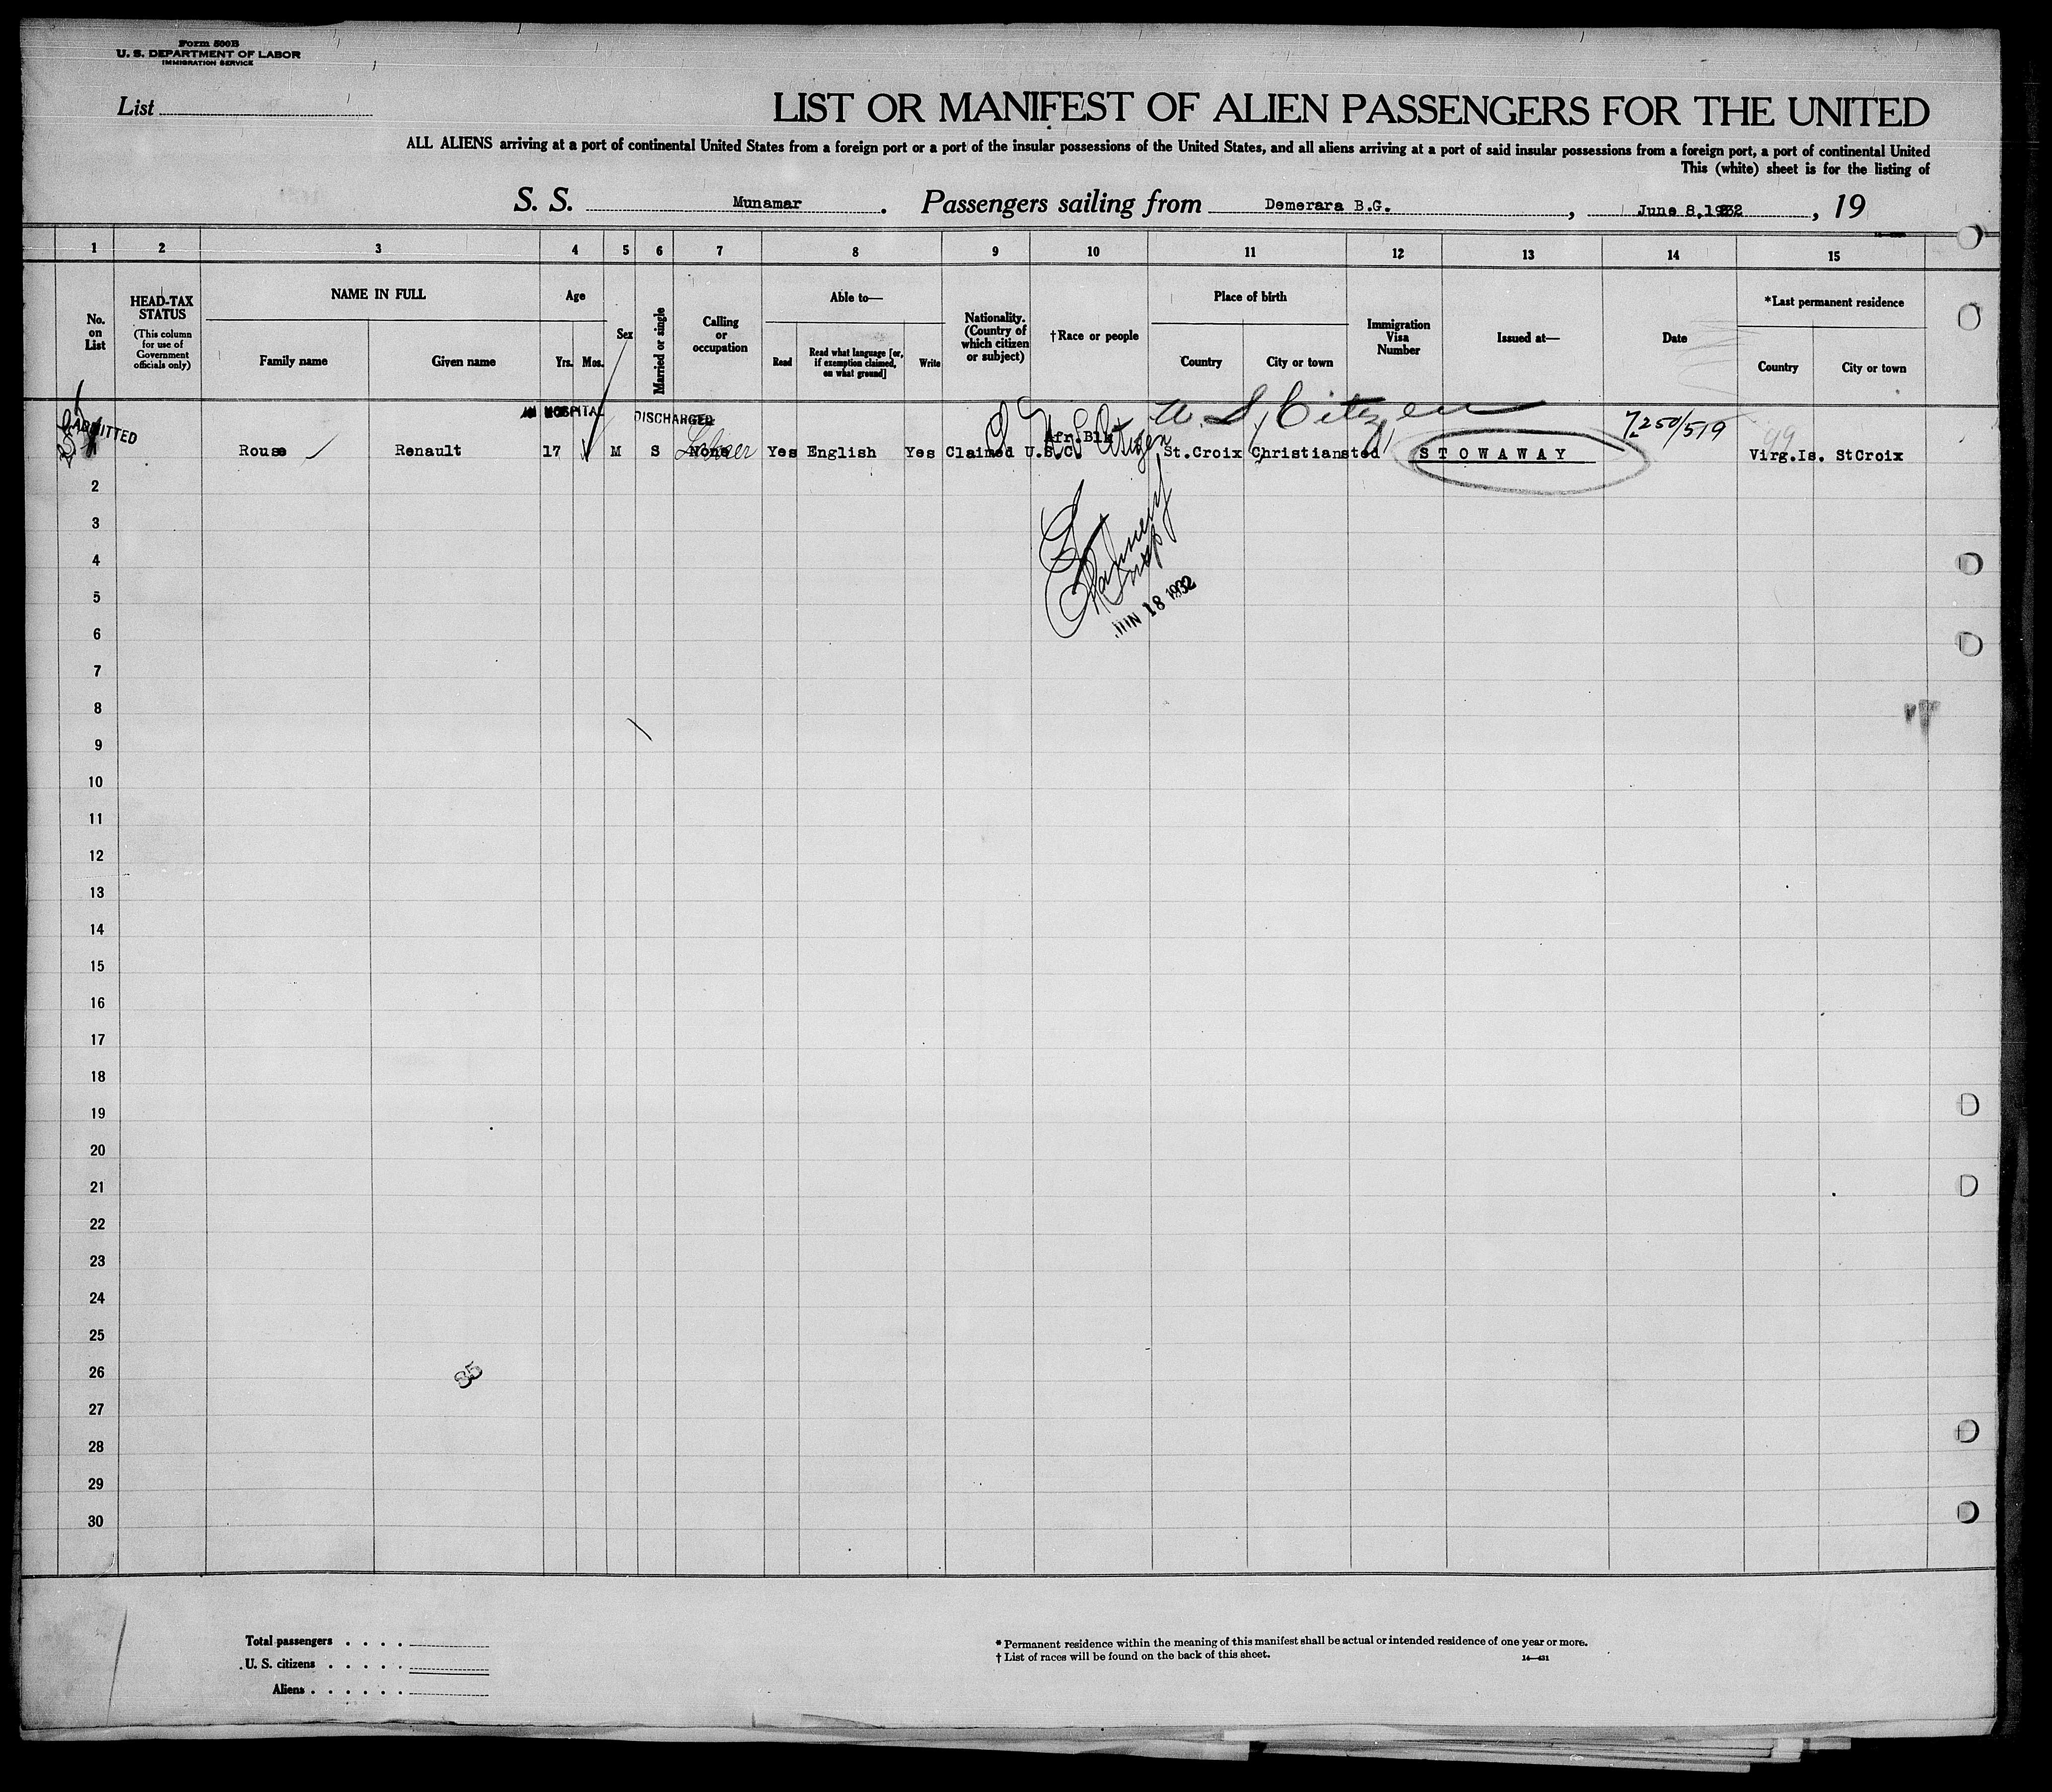 Form 500B
U. S. DEPARTMENT OF LABOR
IMMIGRATION SERVICE
List
LIST OR MANIFEST OF ALIEN PASSENGERS FOR THE UNITED
ALL ALIENS arriving at a port of continental United States from a foreign port or a port of the insular possessions of the United States, and all aliens arriving at a port of said insular possessions from a foreign port, a port of continental United
This (white) sheet is for the listing of
S. S. Munamar. Passengers sailing from Demerara B.G., June 8,1932, 19
1 2 3 4 5 6 7 8 9 10 11 12 13 14 15
No. on List
HEAD-TAX STATUS
(This column for use of Government officials only)
NAME IN FULL
Family name
Given name
Age
Yrs. Mos.
Sex
Married or single
Calling or occupation
Able to—
Read
Read what language [or, if exemption claimed, on what ground]
Write
Nationality. (Country of which citizen or subject)
†Race or people
Place of birth
Country
City or town
Immigration Visa Number
Issued at—
Date
*Last permanent residence
Country
City or town
ADMITTED
IN HOSPITAL
DISCHARGED
U. S. Citizen
7250/519
99
Afr.Blk
U.S. Citizen
Rouse Renault 17 M S None Yes English Yes Claimed U.S.C. St.Croix Christiansted STOWAWAY Virg.Is. StCroix
Laborer
2
3
4
5
6
7
8
9
10
11
12
13
14
15
16
17
18
19
20
21
22
23
24
25
26
27
28
29
30
Insp
JUN 18 1932
35
Total passengers . . . .
U. S. citizens . . . . .
Aliens . . . . . .
* Permanent residence within the meaning of this manifest shall be actual or intended residence of one year or more.
† List of races will be found on the back of this sheet.
14—431